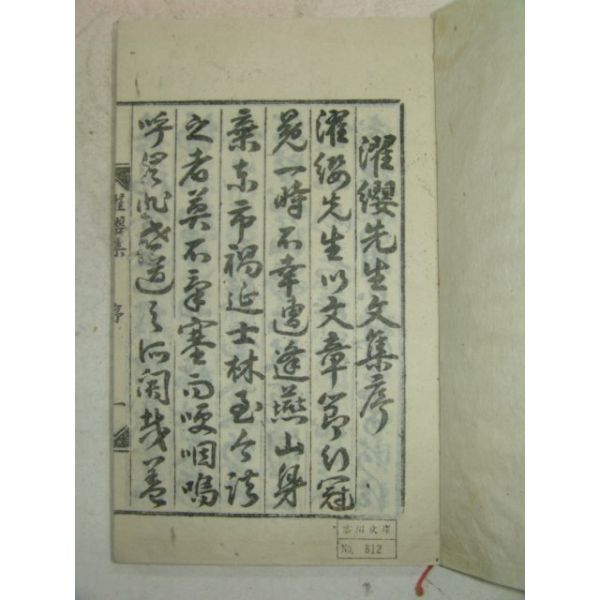 濯纓先生文集序
濯纓先生以文章節行冠
冕一時不幸遭逢燕山身
棄東市禍延士林至今談
之者莫不氣塞而哽咽嗚
呼非世道之所關哉蓋
濯纓集 序 一
川文庫
No. 812